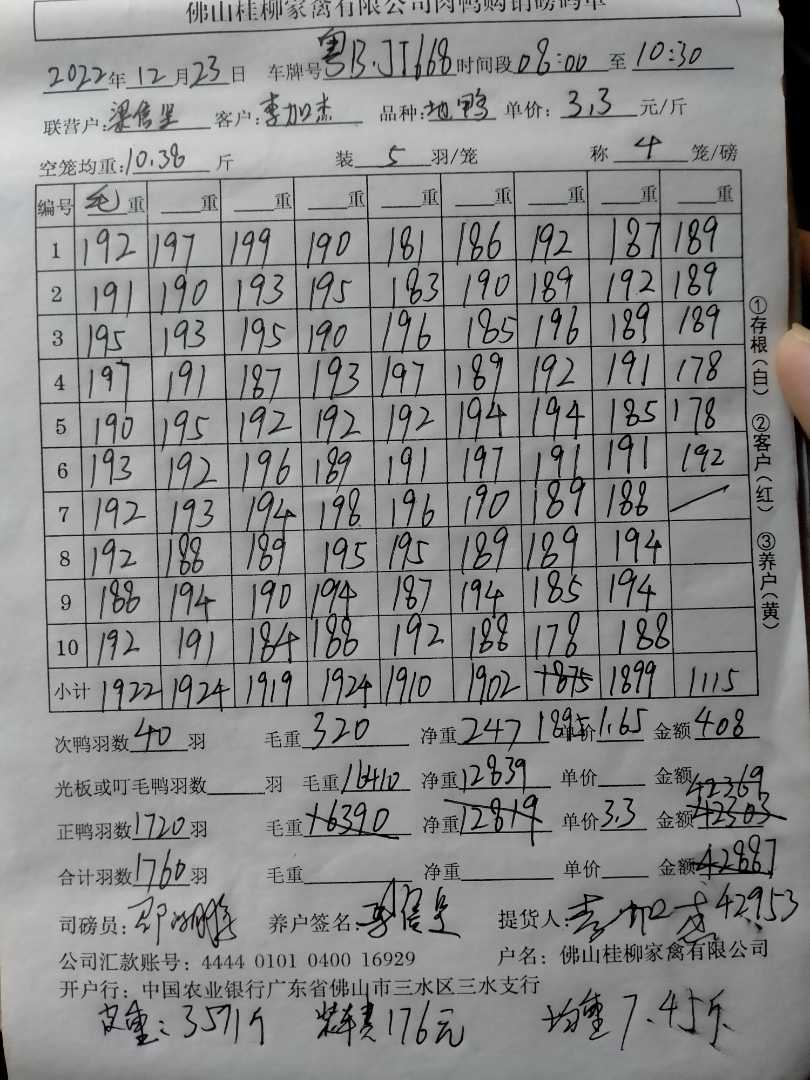 佛山桂柳家禽有限公司肉鸭购销磅码单
2022年12月23日 车牌号粤B.JJ668时间段08:00至10:30
联营户:梁信呈 客户:李加杰 品种:地鸭 单价:3.3元/斤
空笼均重:10.38斤 装5羽/笼 称4笼/磅
编号 毛重 重 重 重 重 重 重 重 重
1 192 197 199 190 181 186 192 187 189
2 191 190 193 195 183 190 189 192 189
3 195 193 195 190 196 185 196 189 189
4 197 191 187 193 197 189 192 191 178
5 190 195 192 192 192 194 194 185 178
6 193 192 196 189 191 197 191 191 192
7 192 193 194 198 196 190 189 188
8 192 188 189 195 195 189 189 194
9 188 194 190 194 187 194 185 194
10 192 191 184 188 192 188 178 188
小计 1922 1924 1919 1924 1910 1902 1875 1899 1115
1895
次鸭羽数40羽 毛重320 净重247 单价1.65 金额408
光板或叮毛鸭羽数 羽 毛重16410 净重12839 单价 金额42369
正鸭羽数1720羽 毛重16390 净重12819 单价3.3 金额42303
合计羽数1760羽 毛重 净重 单价 金额42887
司磅员: 养户签名: 信呈 提货人:李加杰 42953
公司汇款账号:4444 0101 0400 16929 户名:佛山桂柳家禽有限公司
开户行:中国农业银行广东省佛山市三水区三水支行
皮重:3571斤 装车费176元 均重7.45斤
①存根(白) ②客户(红) ③养户(黄)